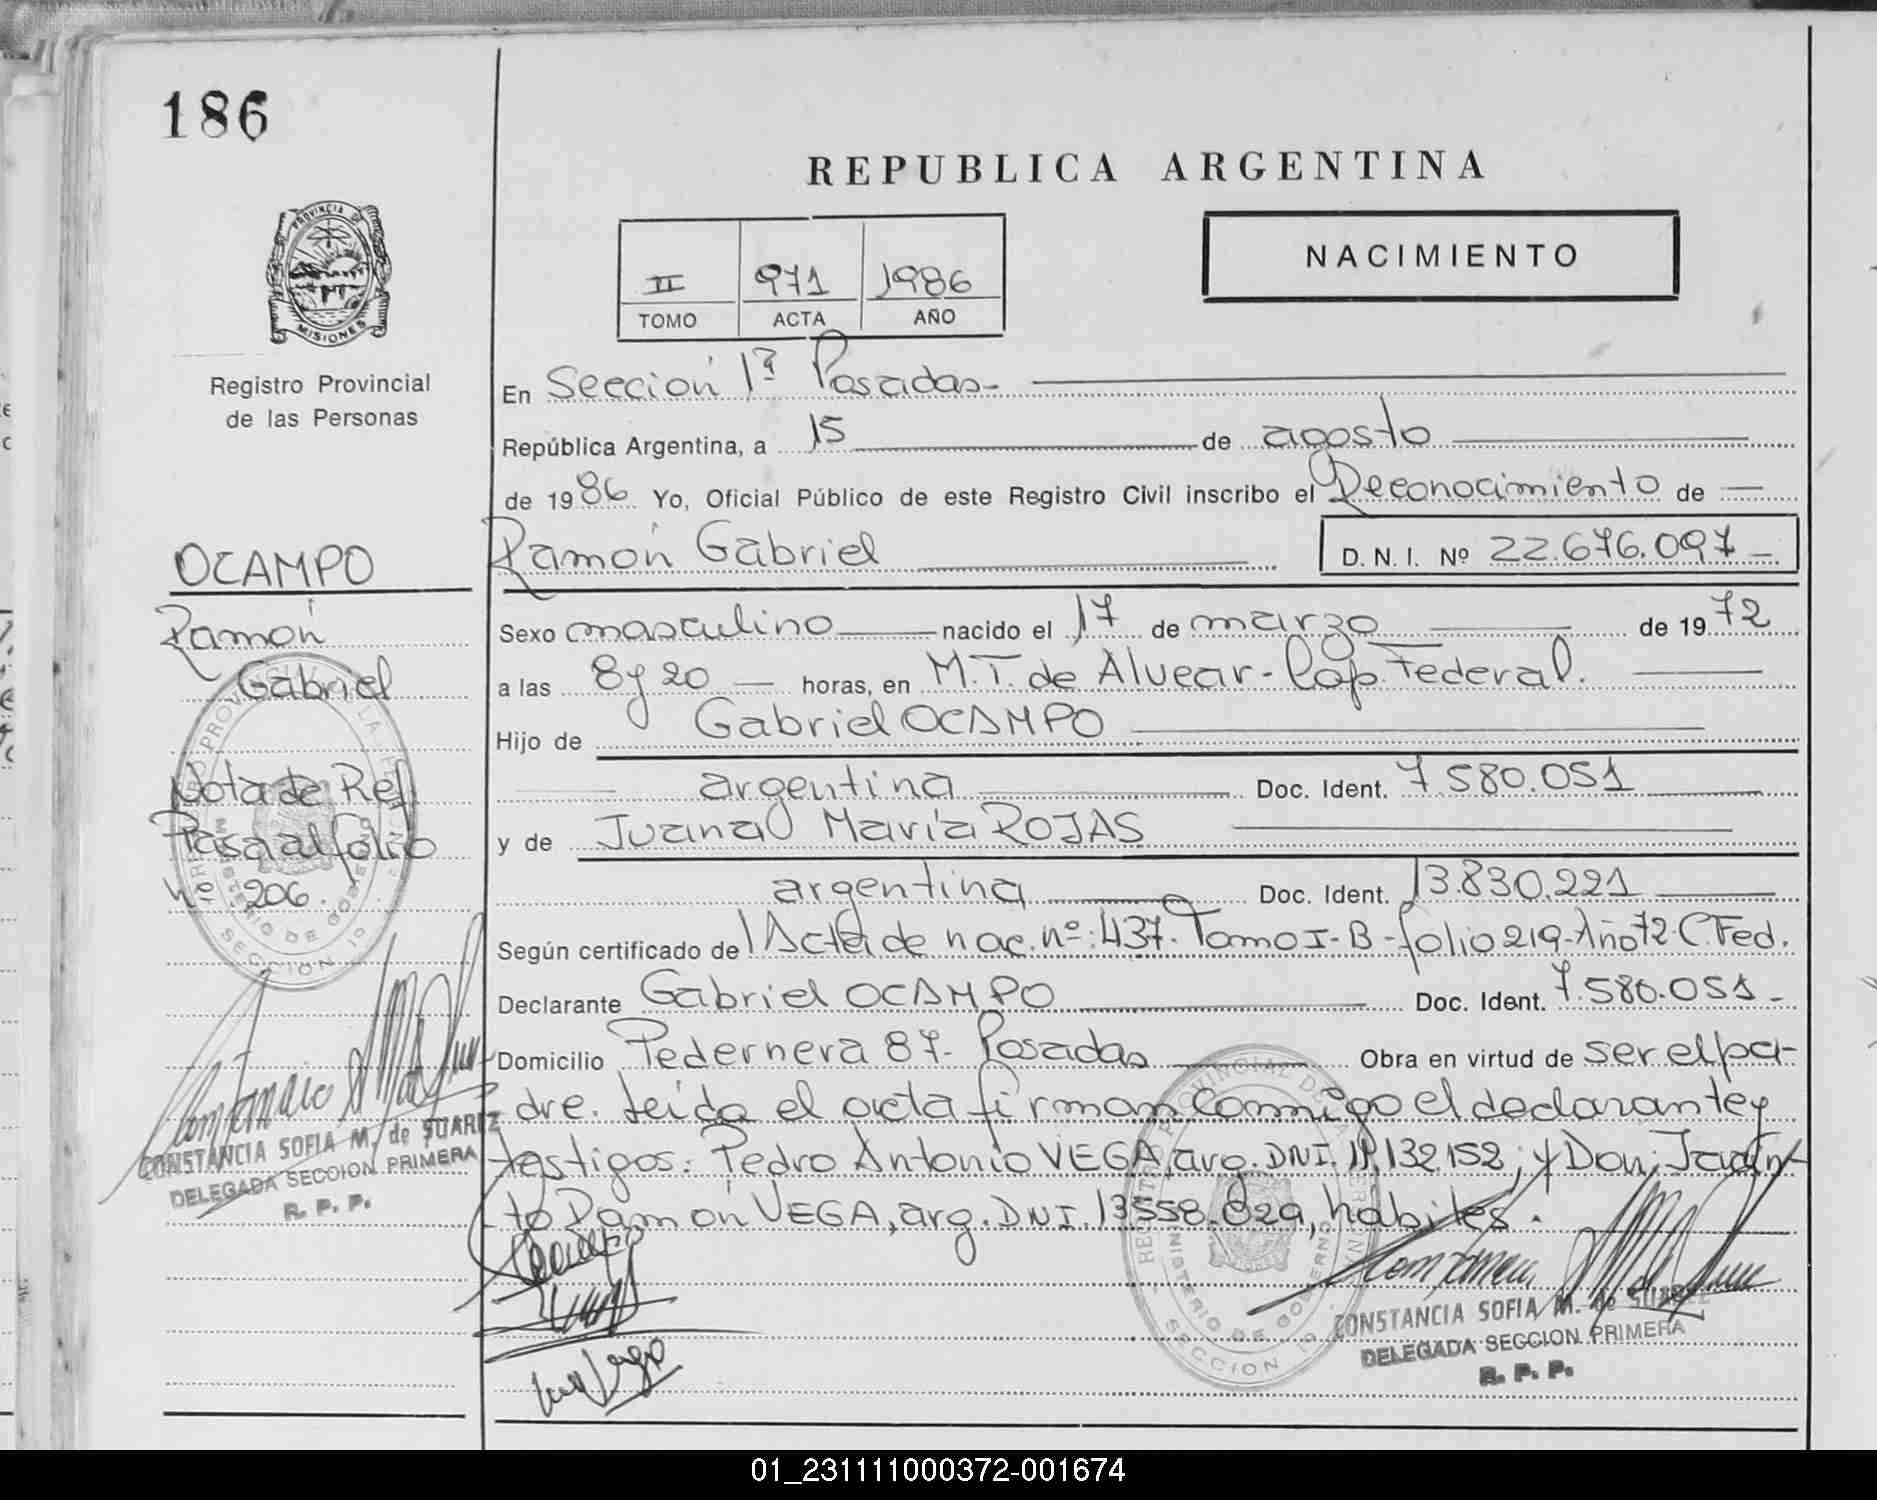 186
REPUBLICA ARGENTINA
PROVINCIA DE
MISIONES
Registro Provincial
de las Personas
II 971 1986
TOMO ACTA AÑO
NACIMIENTO
En Sección 1ª Posadas-
República Argentina, a 15 de agosto
de 1986 Yo, Oficial Público de este Registro Civil inscribo el Reconocimiento de
Ramón Gabriel D.N.I. Nº 22.676.097
OCAMPO
Ramón
Gabriel
Nota de Ref
Pasa al folio
nº 206.
Sexo masculino nacido el 17 de marzo de 1972
a las 8 y 20 horas, en M.T. de Alvear - Cap. Federal.
Hijo de Gabriel OCAMPO
argentina Doc. Ident. 7.580.051
y de Juana María ROJAS
argentina Doc. Ident. 13.830.221
Según certificado de Acta de nac. nº: 437. Tomo I-B - folio 219 - Año 72 C. Fed.
Declarante Gabriel OCAMPO Doc. Ident. 7.580.051 -
Domicilio Pedernera 87- Posadas Obra en virtud de ser el pa-
dre. Leída el acta firman conmigo el declarante y
testigos: Pedro Antonio VEGA, arg. DNI. 11.132.152; y Don; Jacin-
to Ramón VEGA, arg. DNI. 13.558.829, hábiles.
CONSTANCIA SOFIA M. de SUAREZ
DELEGADA SECCION PRIMERA
R. P. P.
CONSTANCIA SOFIA M. de SUAREZ
DELEGADA SECCION PRIMERA
R. P. P.
01_231111000372-001674